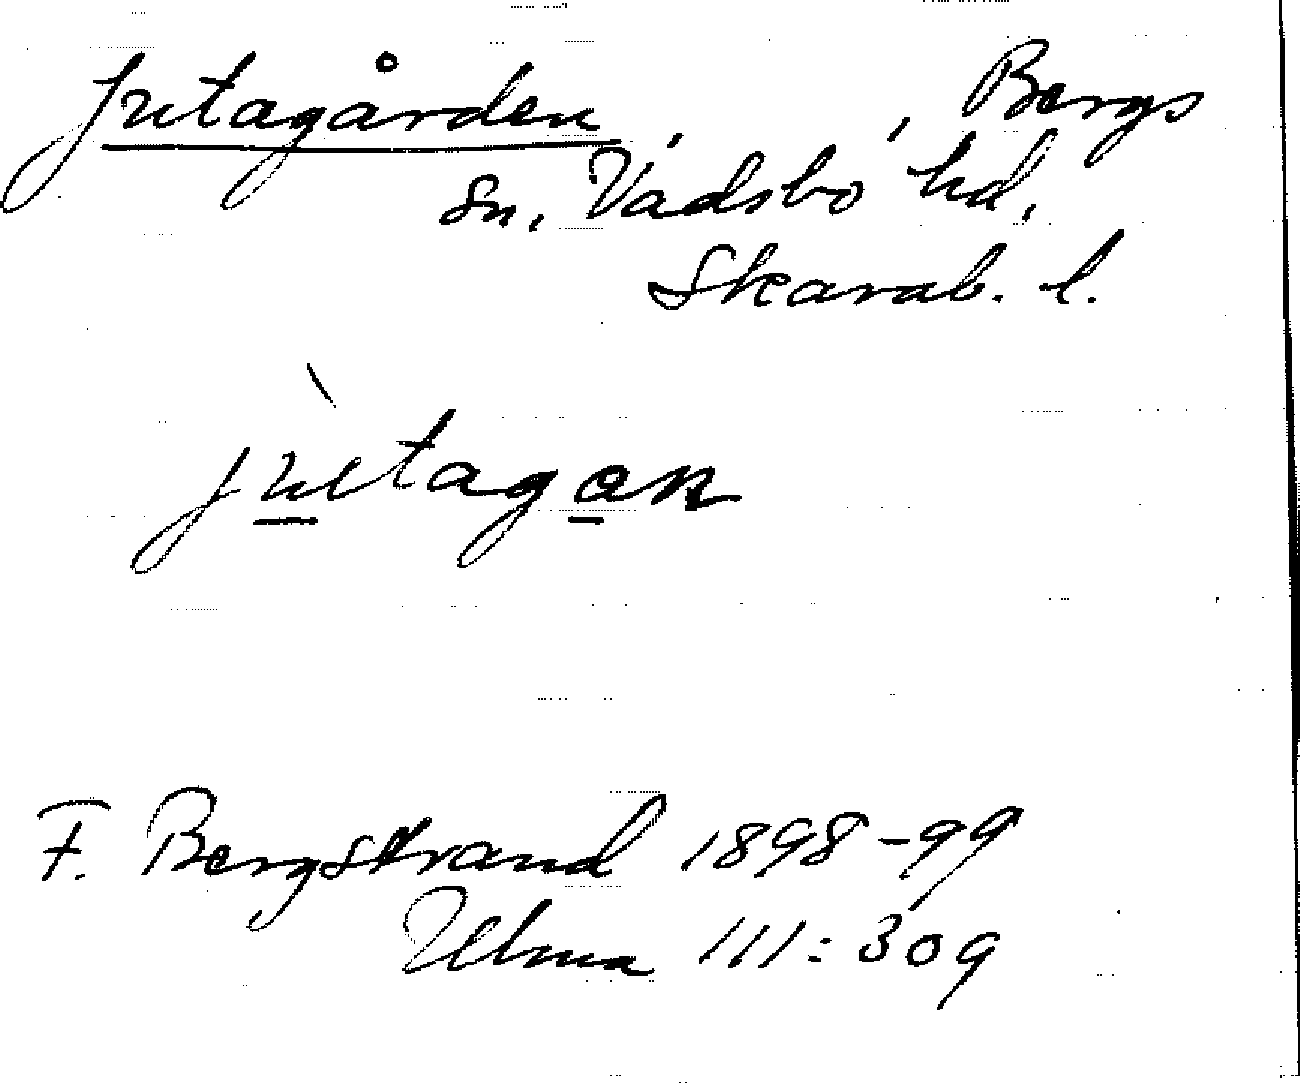 Jutagården, , Bergs
sn, Vadsbo hd,
Skarab. l.
jùtagan
F. Bergstrand 1898-99
Ulma 111:309